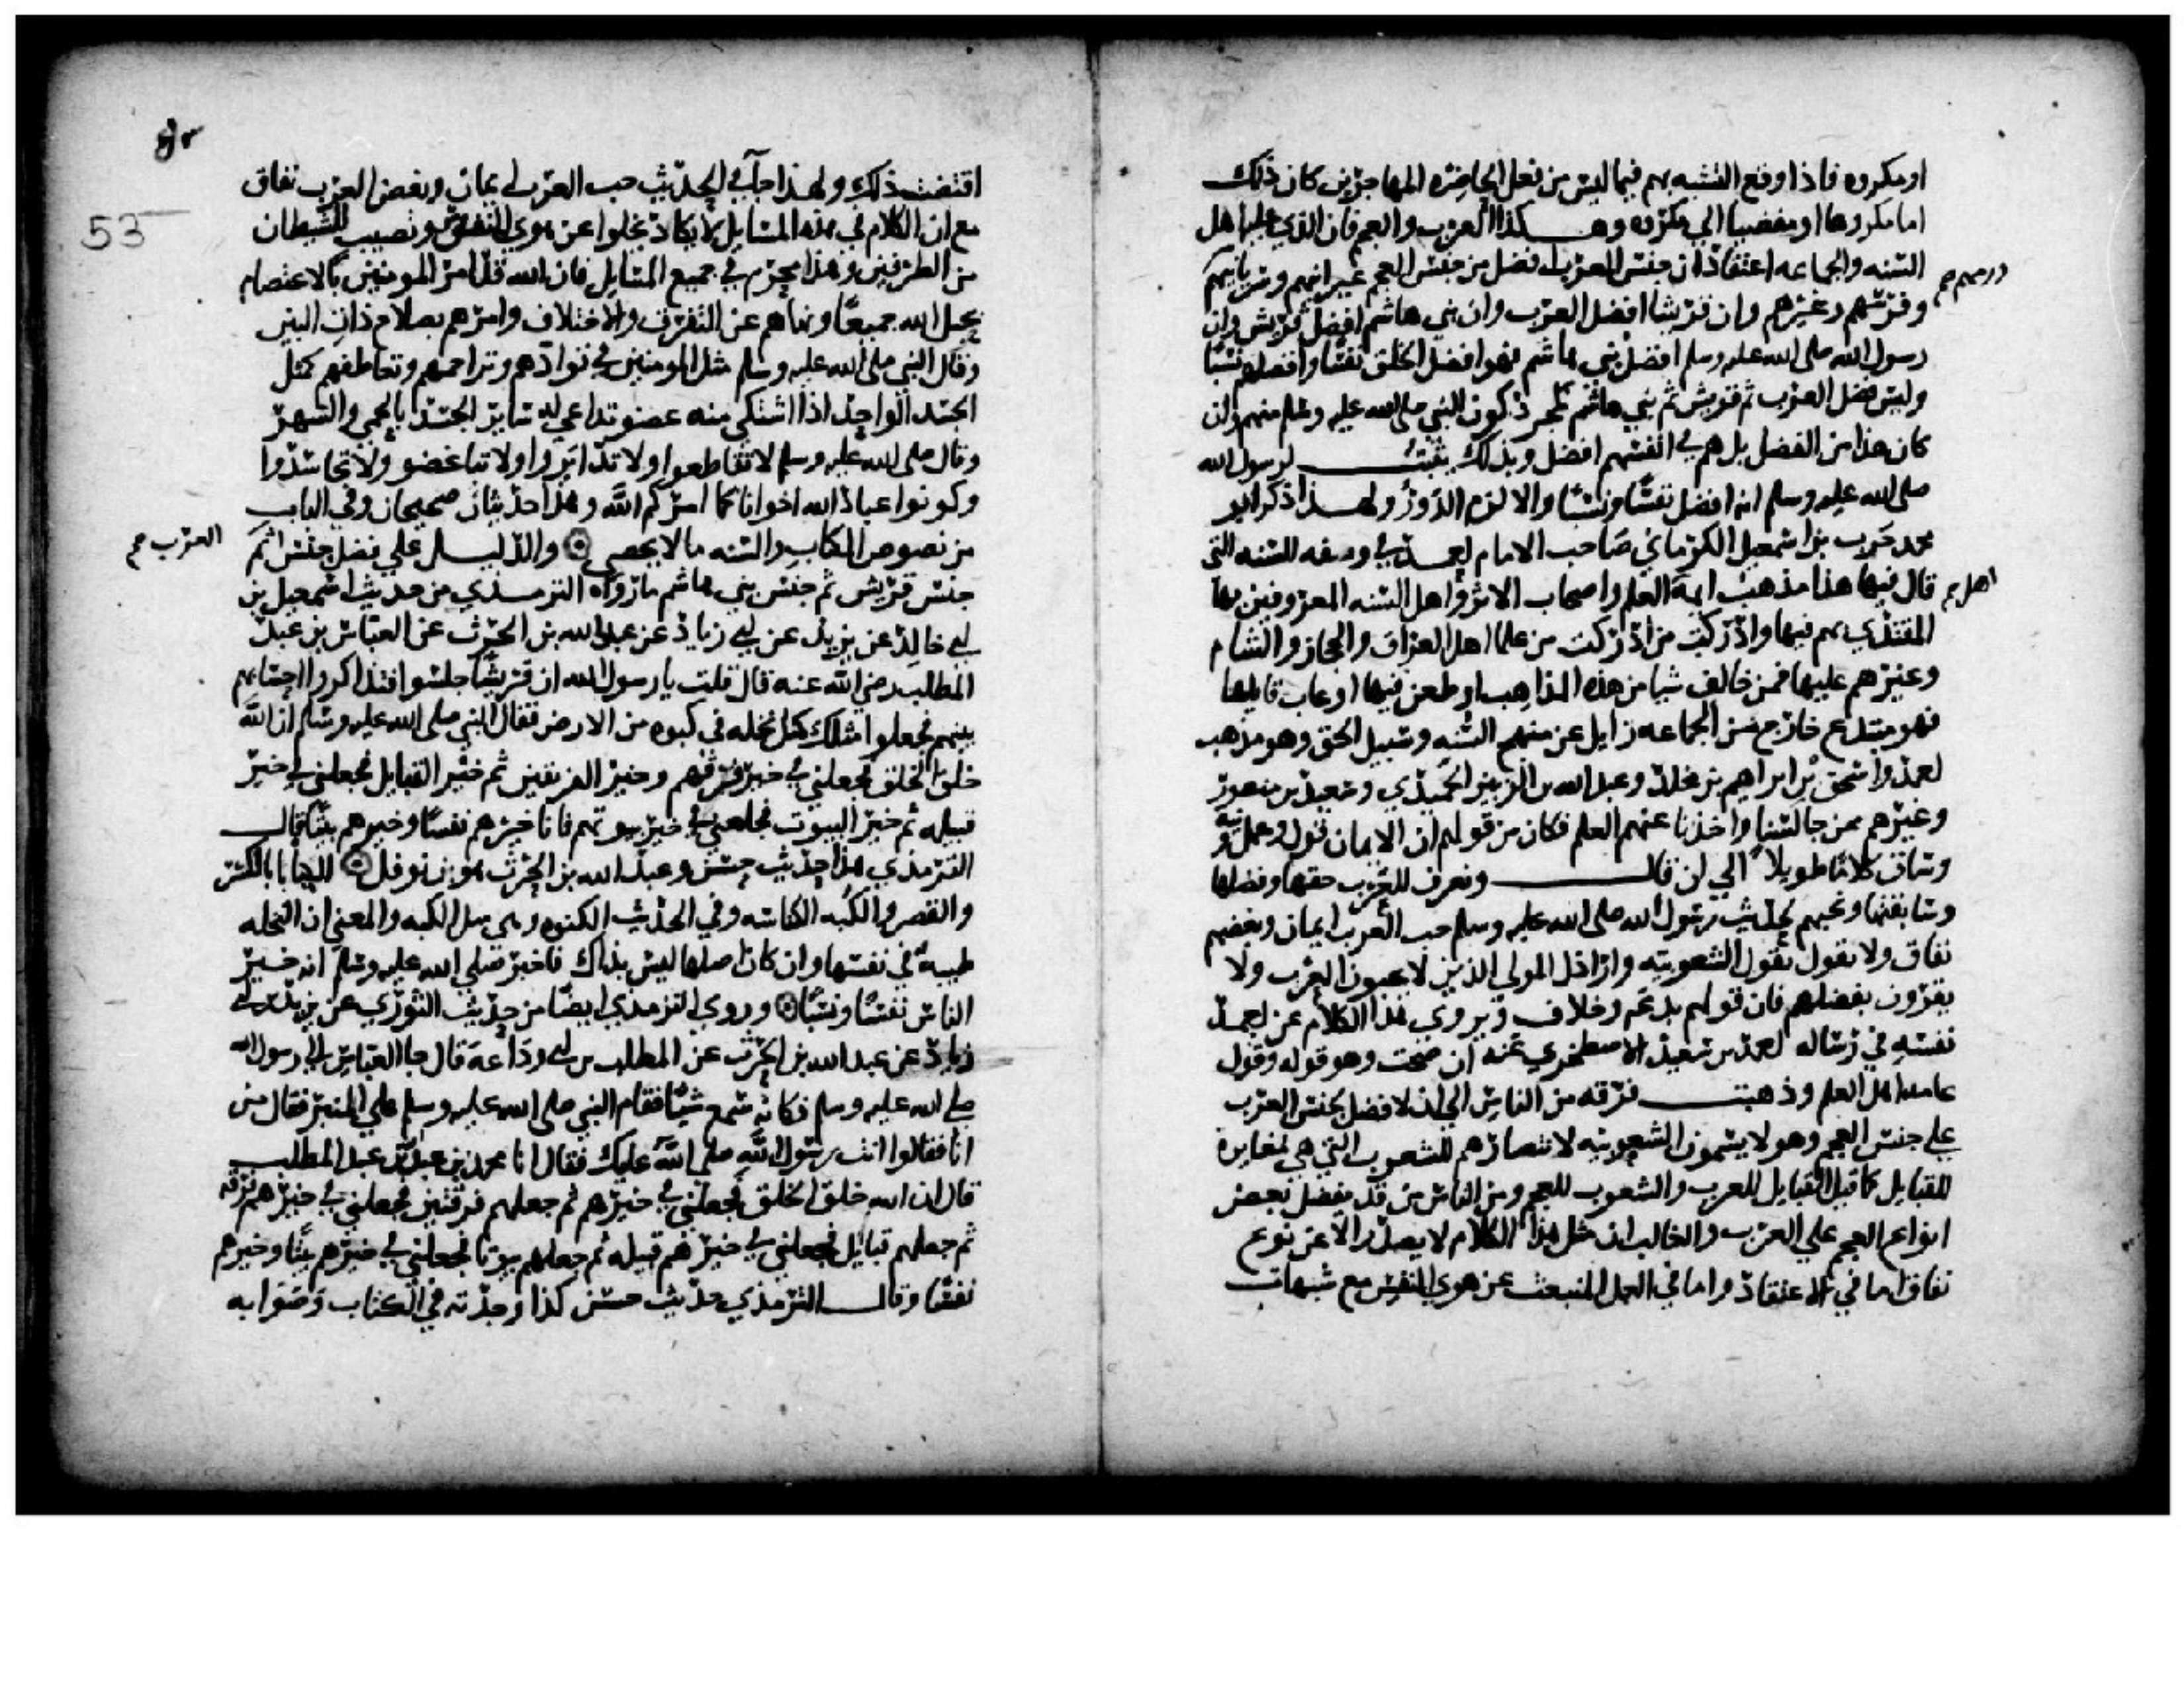 او مكروه فاذا وقع التشبه بهم فيما ليس من فعل الحاضره المهاجرين كان ذلك
اما مكروها او مفضيا الي مكروه وهكذا العرب والعجم فان الذي عليه اهل
السنه والجماعه اعتقاد ان جنس العرب افضل من جنس العجم عبرانيهم وسريانيهم
رومهم صح
وفرسهم وغيرهم وان قريشا افضل العرب وان بني هاشم افضل قريش وان
رسول الله صلى الله عليه وسلم افضل بني هاشم فهو افضل الخلق نفسا وافضلهم نسبا
وليس فضل العرب ثم قريش ثم بني هاشم بمجرد كون النبي صلى الله عليه وسلم منهم وان
كان هذا من الفضل بل هم في انفسهم افضل وبذلك يثبت لرسول الله
صلى الله عليه وسلم انه افضل نفسا ونسبا والا لزم الدور ولهذا ذكر ابو
محمد حرب بن اسمعيل الكرماني صاحب الامام احمد في وصفه للسنه التي
قال فيها هذا مذهب ايمة العلم واصحاب الاثر واهل السنه المعروفين بها
اهل صح
المقتدي بهم فيها وادركت من ادركت من علما اهل العراق والحجاز والشام
وغيرهم عليها فمن خالف شيا من هذه المذاهب او طعن فيها او عاب قايلها
فهو مبتدع خارج من الجماعه زايل عن منهج السنه وسبيل الحق وهو مذهب
احمد واسحق بن ابراهيم بن مخلد وعبد الله بن الزبير الحميدي وسعيد بن منصور
وغيرهم ممن جالسنا واخذنا عنهم العلم فكان من قولهم ان الايمان قول وعمل ونية
وساق كلاما طويلا الي ان قال ونعرف للعرب حقها وفضلها
وسابقتها ونحبهم لحديث رسول الله صلى الله عليه وسلم حب العرب ايمان وبغضهم
نفاق ولا نقول بقول الشعوبيه واراذل الموالي الذين لا يحبون العرب ولا
يقرون بفضلهم فان قولهم بدعه وخلاف ويروي هذا الكلام عن احمد
نفسه في رساله احمد بن سعيد الاصطخري عنه ان صحت وهو قوله وقول
عامه اهل العلم وذهبت فرقه من الناس الي ان لا فضل لجنس العرب
علي جنس العجم وهولا يسمون الشعوبيه لانتصارهم للشعوب التي هي مغايرة
للقبايل كما قيل القبايل للعرب والشعوب للعجم ومن الناس من قد يفضل بعض
انواع العجم علي العرب والغالب ان مثل هذا الكلام لا يصدر الا عن نوع
نفاق اما في الاعتقاد واما في العمل المنبعث عن هوي النفس مع شبهات
53
اقتضت ذلك ولهذا جا في الحديث حب العرب ايمان وبغض العرب نفاق
مع ان الكلام في هذه المسايل لا يكاد يخلوا عن هوي للنفس ونصيب للشيطان
من الطرفين وهذا محرم في جميع المسايل فان الله قد امر المومنين بالاعتصام
بحبل الله جميعا ونهاهم عن التفرق والاختلاف وامرهم بصلاح ذات البين
وقال النبي صلى الله عليه وسلم مثل المومنين في توادهم وتراحمهم وتعاطفهم كمثل
الجسد الواحد اذا اشتكي منه عضو تداعي له ساير الجسد بالحمي والسهر
وقال صلى الله عليه وسلم لا تقاطعوا ولا تدابروا ولا تباغضو ولا تحاسدوا
وكونوا عباد الله اخوانا كما امركم الله وهذا حديثان صحيحان وفي الباب
من نصوص الكتاب والسنه ما لا يحصي والدليل علي فضل جنس ثم
العرب صح
جنس قريش ثم جنس بني هاشم ما رواه الترمذي من حديث اسمعيل بن
ابي خالد عن يزيد بن ابي زياد عن عبد الله بن الحرث عن العباس بن عبد
المطلب رضي الله عنه قال قلت يا رسول الله ان قريشا جلسوا فتذاكروا احسابهم
بينهم فجعلوا مثلك كمثل نخله في كبوه من الارض فقال النبي صلى الله عليه وسلم ان الله
خلق الخلق فجعلني في خير فرقهم وخير الفريقين ثم خير القبايل فجعلني في خير
قبيله ثم خير البيوت فجعلني في خير بيوتهم فانا خيرهم نفسا وخيرهم بيتا قال
الترمذي هذا حديث حسن وعبد الله بن الحرث هو بن نوفل الكبا بالكسر
والقصر والكبه الكناسه وفي الحديث الكبوه وهي مثل الكبه والمعني ان النخله
طيبه في نفسها وان كان اصلها ليس بذاك فاخبر صلي الله عليه وسلم انه خير
الناس نفسا ونسبا وروي الترمذي ايضا من حديث الثوري عن يزيد بن ابي
زياد عن عبد الله بن الحرث عن المطلب بن ابي وداعة قال جا العباس الي رسول الله
صلى الله عليه وسلم فكانه سمع شيا فقام النبي صلى الله عليه وسلم علي المنبر فقال من
انا فقالوا انت رسول الله صلي الله عليك فقال انا محمد بن عبد الله بن عبد المطلب
قال ان الله خلق الخلق فجعلني في خيرهم ثم جعلهم فرقتين فجعلني في خيرهم فرقه
ثم جعلهم قبايل فجعلني في خيرهم قبيله ثم جعلهم بيوتا فجعلني في خيرهم بيتا وخيرهم
نفسا وقال الترمذي حديث حسن كذا وجدته في الكتاب وصوابه